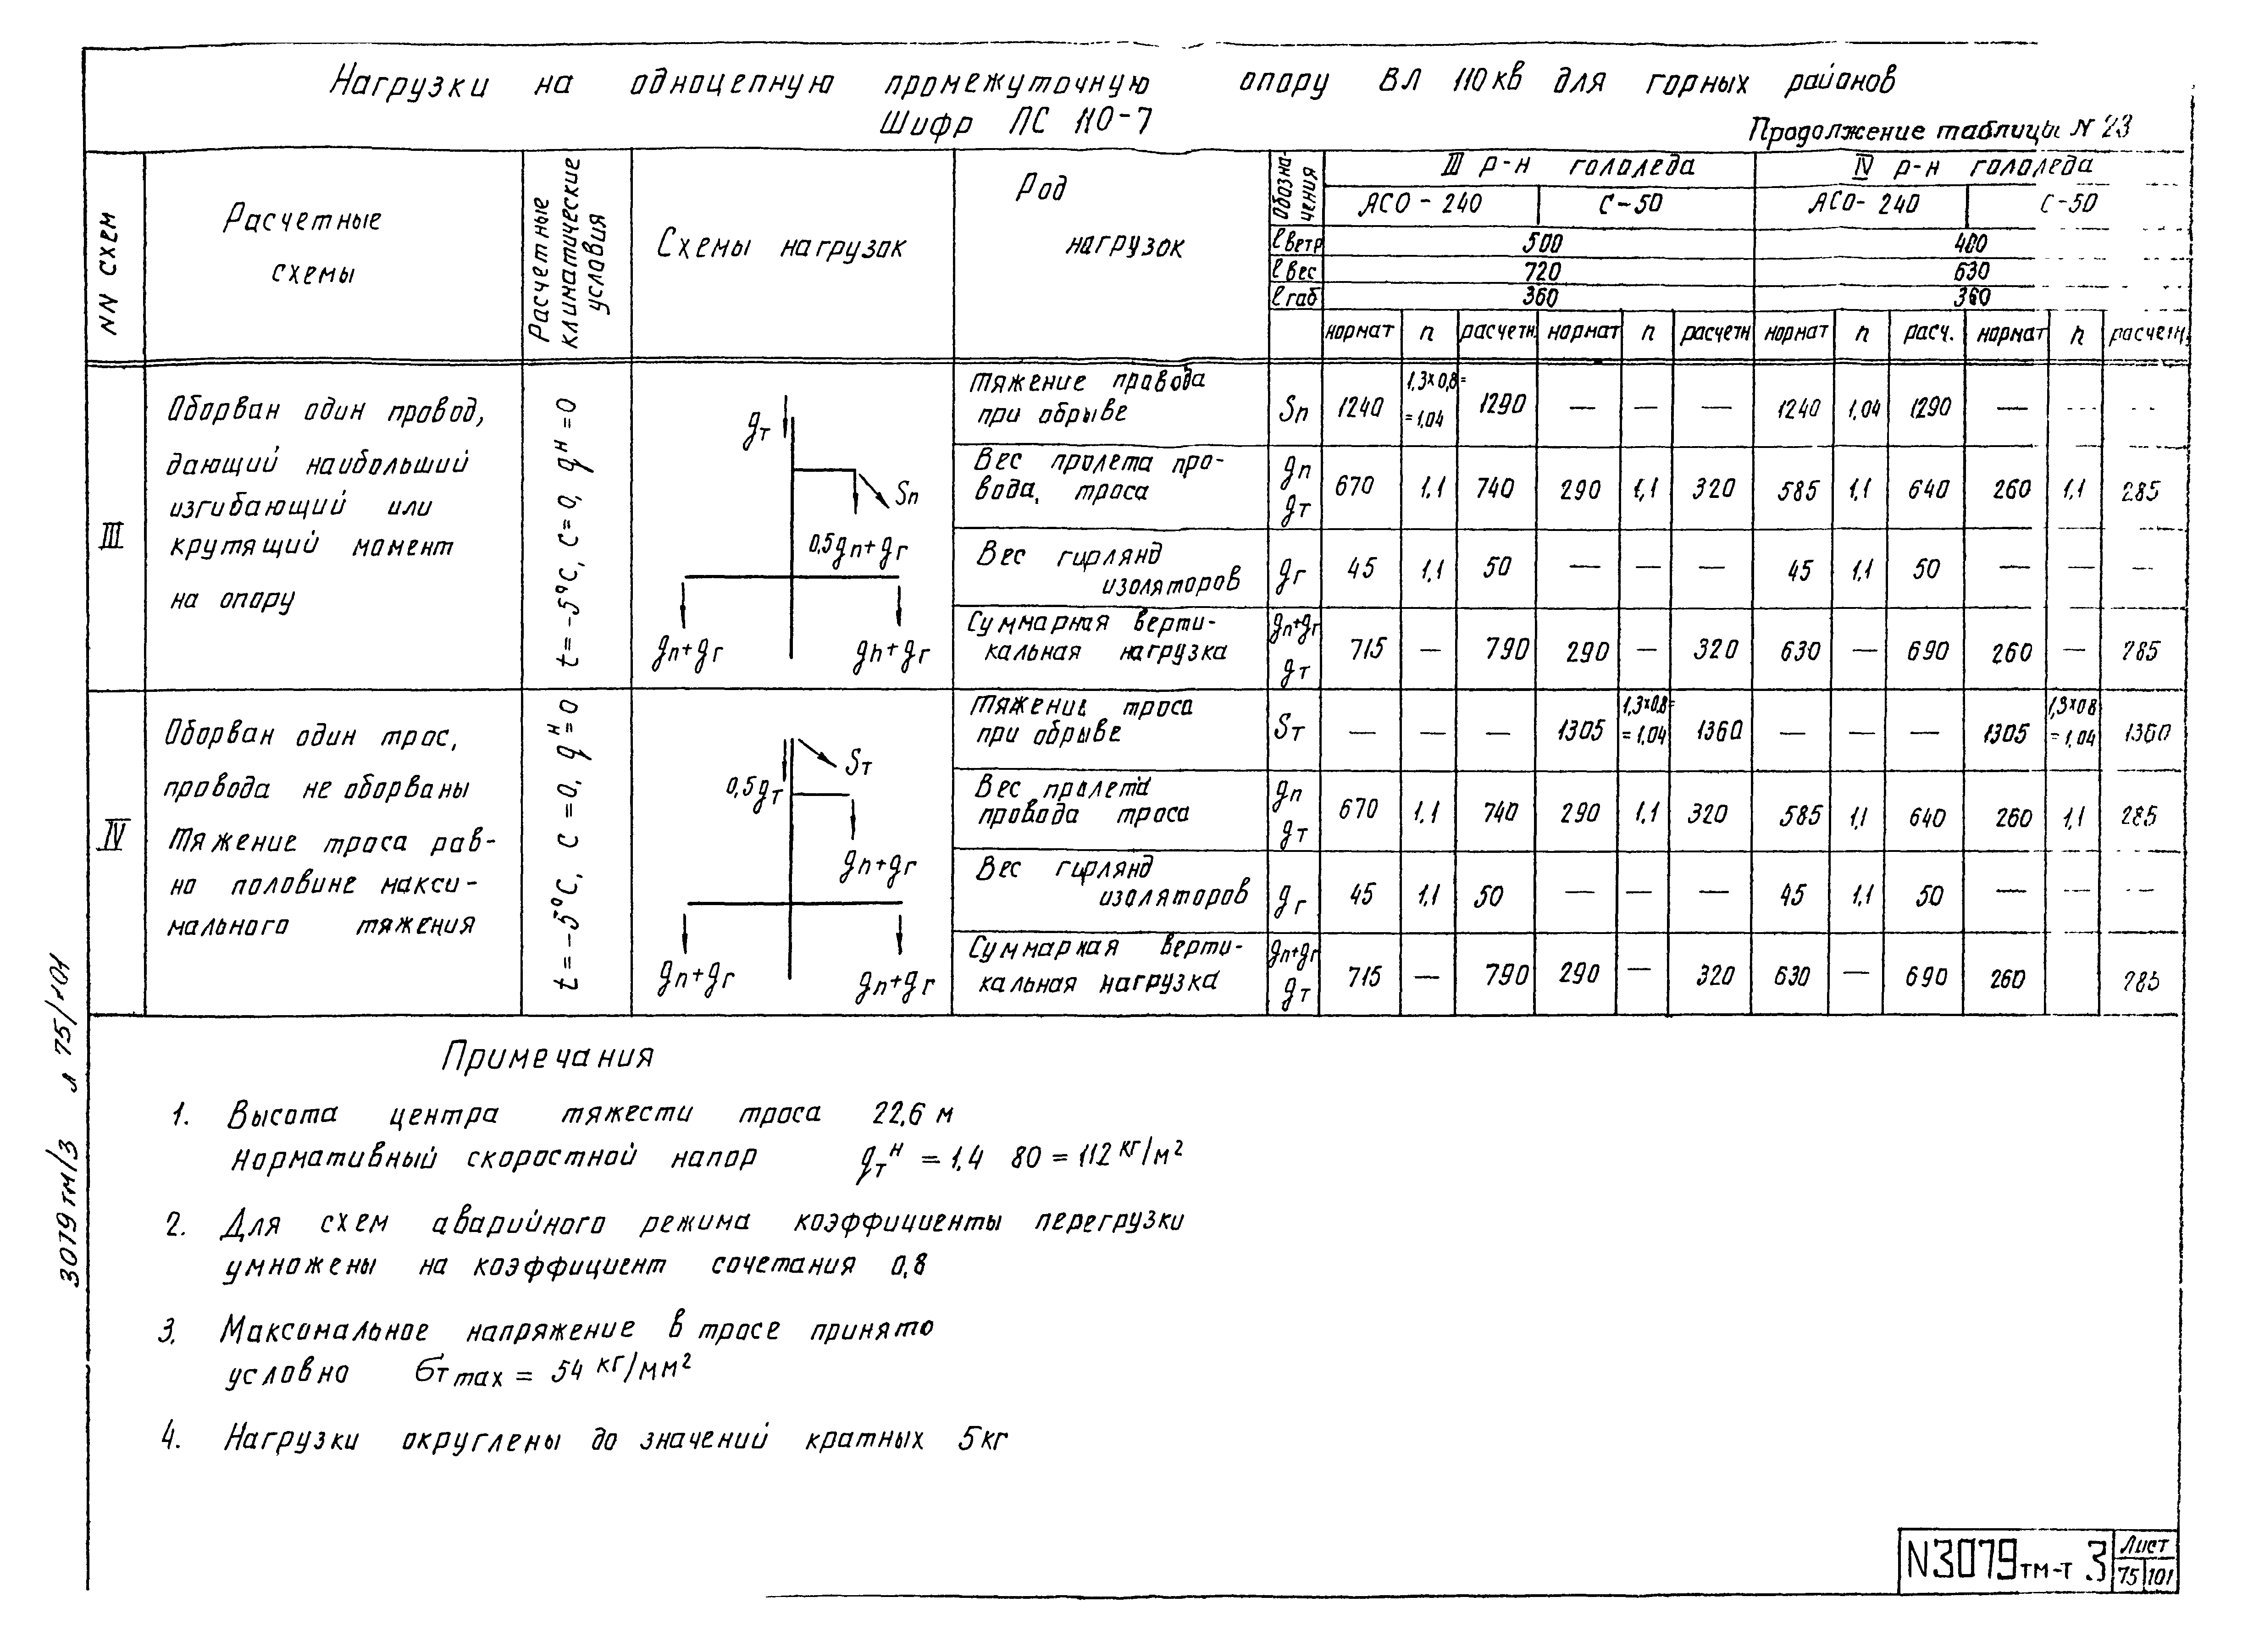 Нагрузки на одноцепную промежуточную опору ВЛ 110 кв для горных районов
Шифр ПС 110-7
Продолжение таблицы N 23
NN схем
Расчетные
схемы
Расчетные
климатические
условия
Схемы нагрузок
Род
нагрузок
Обозна-
чения
III р-н гололеда
IV р-н гололеда
АСО-240 С-50 АСО-240 С-50
lветр 500 400
lвес 720 630
lгаб 360 360
нормат n расчетн нормат n расчетн нормат n расч. нормат n расчетн.
III
Оборван один провод,
дающий наибольший
изгибающий или
крутящий момент
на опору
t=-5°С, С=0, qᴴ=0
gт
Sп
0,5gп+gг
gп+gг gп+gг
Тяжение провода
при обрыве
Sп 1240 1,3×0,8= =1,04 1290 — — — 1240 1,04 1290 — — —
Вес пролета про-
вода, троса
gп
gт
670 1.1 740 290 1,1 320 585 1.1 640 260 1,1 285
Вес гирлянд
изоляторов
gг 45 1.1 50 — — — 45 1.1 50 — — —
Суммарная верти-
кальная нагрузка
gп+gг
gт
715 — 790 290 — 320 630 — 690 260 — 285
IV
Оборван один трос,
провода не оборваны
Тяжение троса рав-
но половине макси-
мального тяжения
t=-5°С, С=0, qᴴ=0
Sт
0,5gт
gп+gг
gп+gг gп+gг
Тяжение троса
при обрыве
Sт — — — 1305 1,3×0,8= =1,04 1360 — — — 1305 1,3×0,8 =1,04 1360
Вес пролета
провода троса
gп
gт
670 1.1 740 290 1.1 320 585 1,1 640 260 1,1 285
Вес гирлянд
изоляторов
gг 45 1.1 50 — — — 45 1.1 50 — — —
Суммарная верти-
кальная нагрузка
gп+gг
gт
715 — 790 290 — 320 630 — 690 260 285
Примечания
1. Высота центра тяжести троса 22,6 м
Нормативный скоростной напор gтᴴ = 1.4 80 = 112 кг/м²
2. Для схем аварийного режима коэффициенты перегрузки
умножены на коэффициент сочетания 0,8
3. Максимальное напряжение в тросе принято
условно бт max = 54 кг/мм²
4. Нагрузки округлены до значений кратных 5 кг
3079тм/3 л 75/101
N3079тм-т 3
Лист
75 101